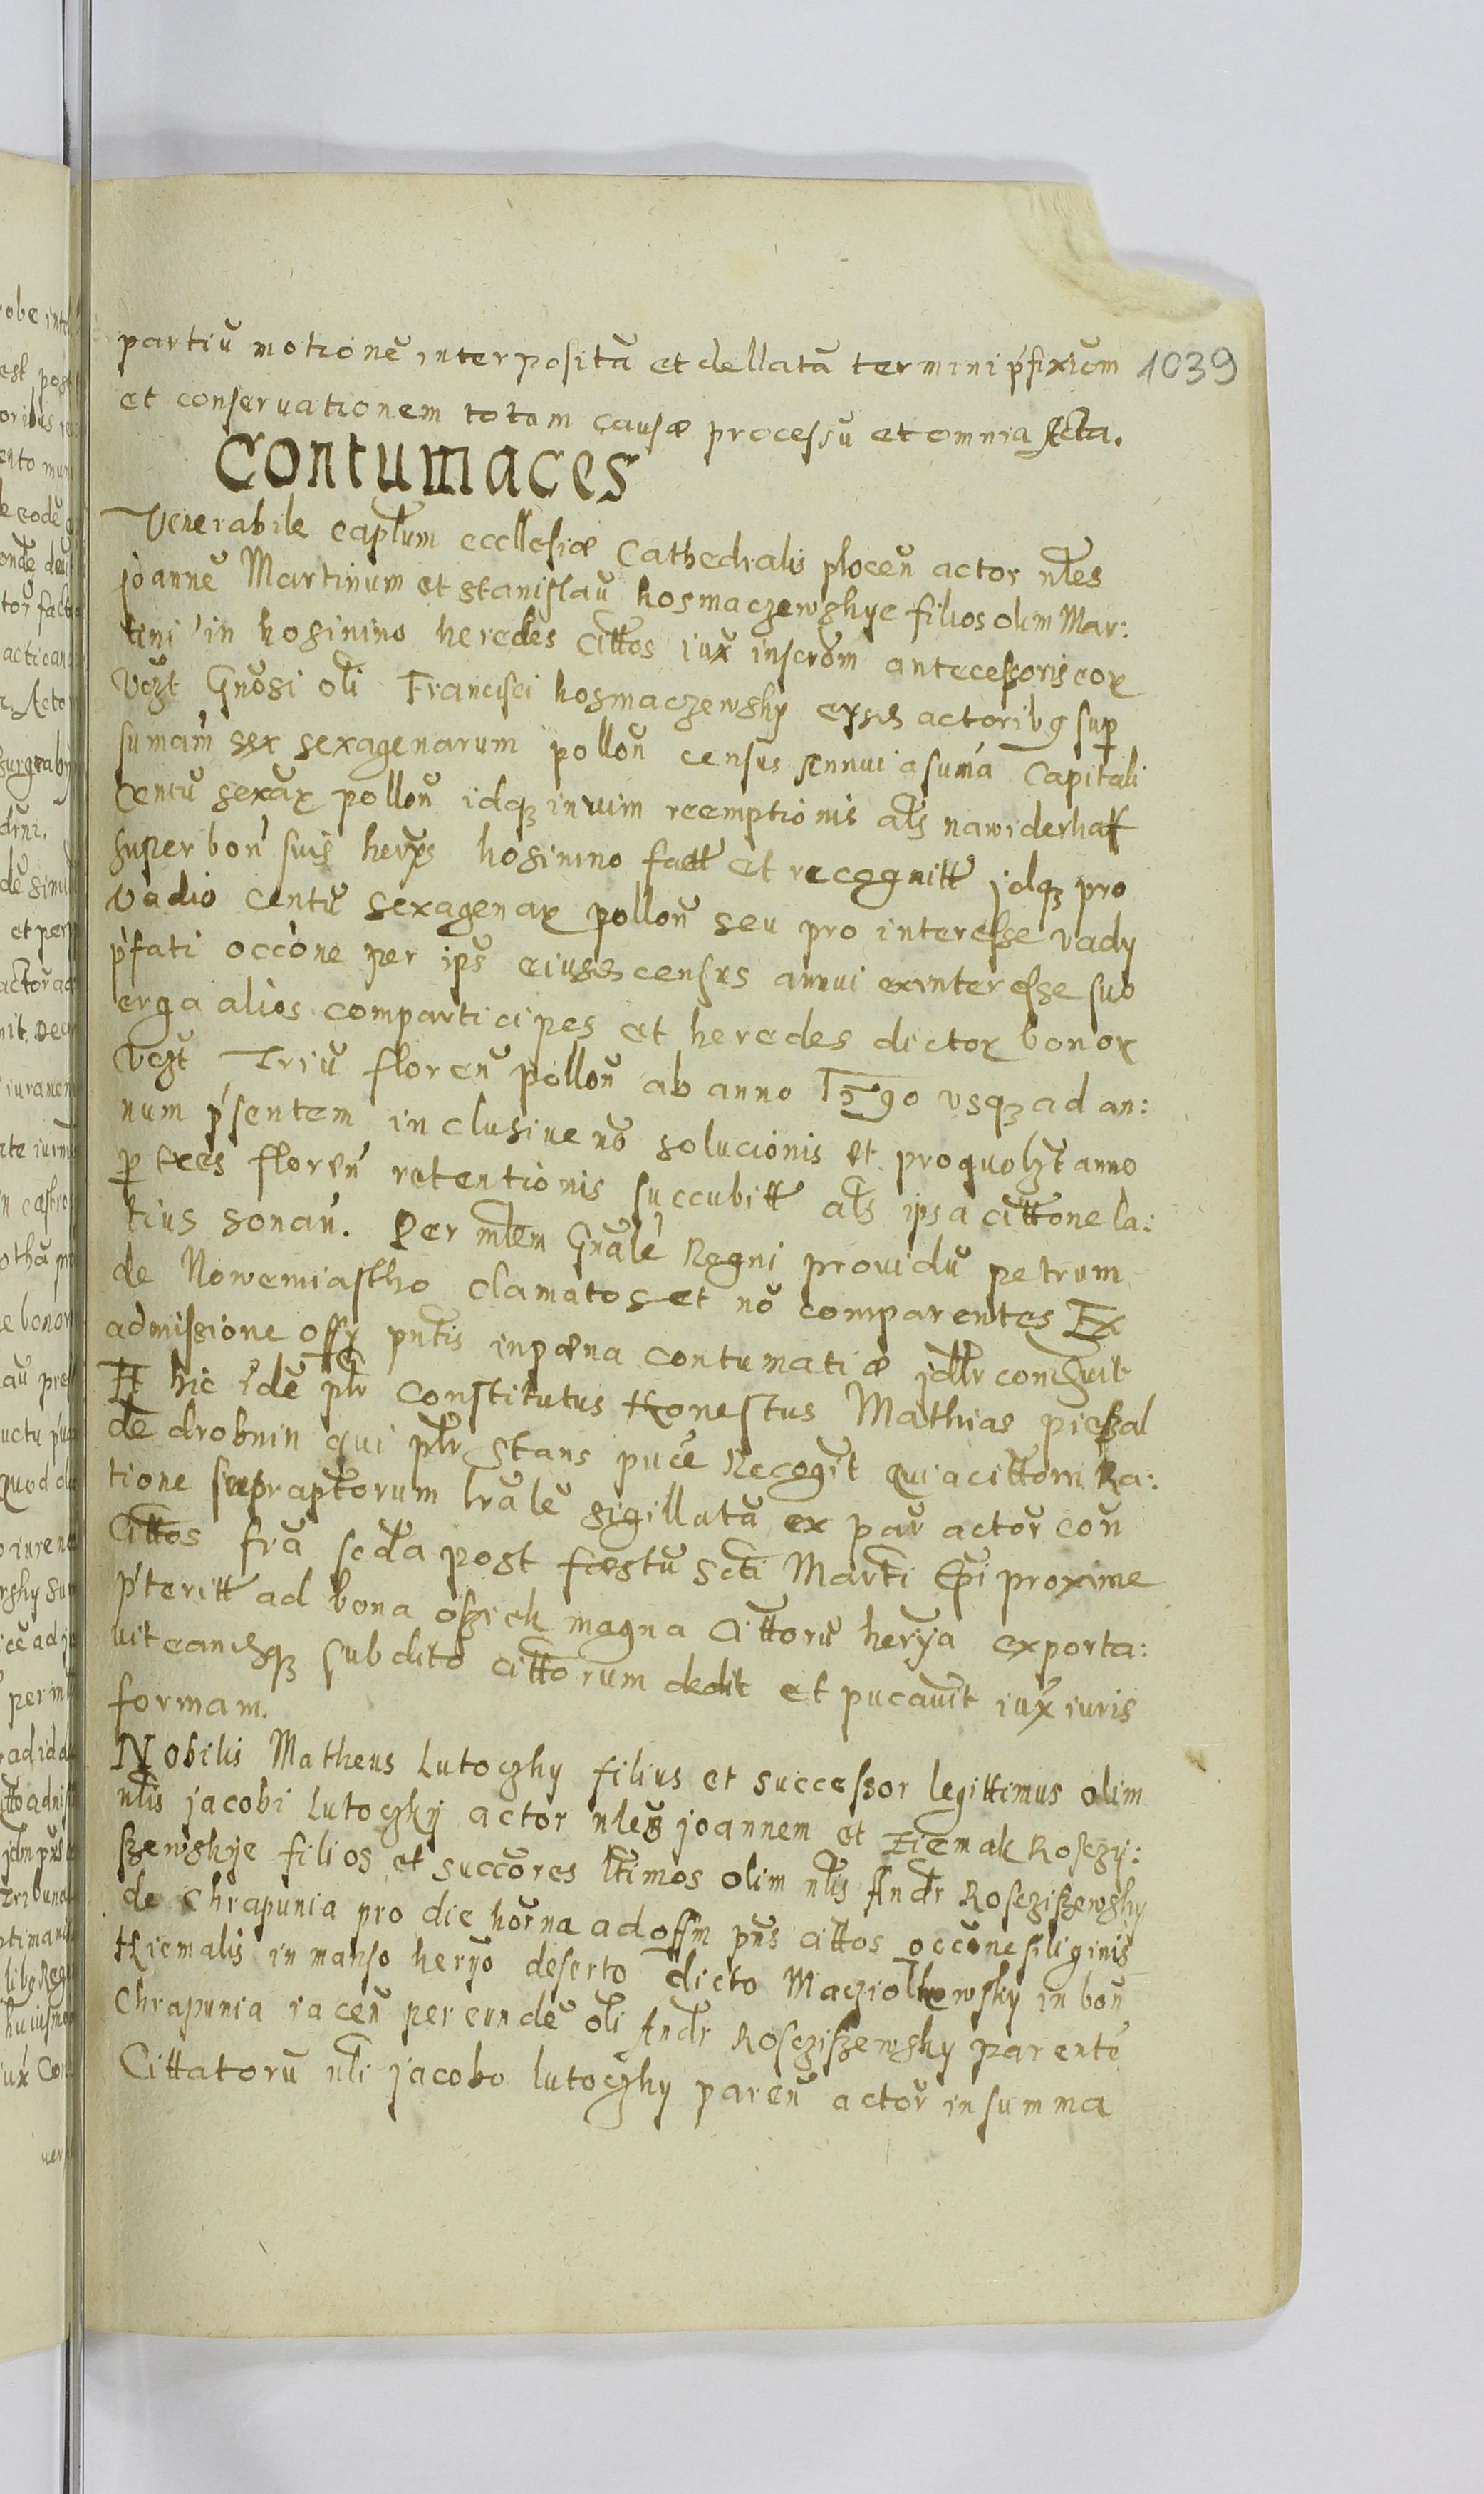 partiū motionē interpositā et dellatā termini p'fixiōm 1039
et conseruationem totam causæ processū et omnia Acta.
Contumaces
Venerabile captlum eccllesiæ Cathedralis plocen̄ actor nles
joannē Martinum et stanislaū kosmaczewshye filios olim Mar:
tini in kosinino heredes Cittos iux̄ inscrōm antecessoris eor
Vczt Gnōsi oli Francisci kosmaczewsky eisd actoribg sup
sumām sex sexagenarum pollon̄ census Annui a sum̄a Capitali
Centū sexār pollon̄ idq3 in vim reemptionis als nawiderkaff
super bon' suis herys kosinino fact et recognitt jdq3 pro
vadio Centū sexagenar pollon̄ seu pro interesse vady
p'fati occōne per ips eiusd census annui ex interesse suo
erga alios comparticipes et heredes dictor bonor
Vczt Triū floren̄ pollon̄ ab anno 1590 usq3 ad an:
num p'sentem inclusiue nō solucionis et pro quolzt anno
p tres floren' retentionis succubitt als ipsa cittone la:
tius sonan̄. Per mlem Gnāle Regni prouidū petrum
de Nowemiastho Clamatos et nō comparentes Ex
admissione offy pntis in pæna contumatiæ jdlr comdwit
Et hic idē plr Constitutus Honestus Mathias pieszal
de drobnin qui plr stans puce Recogt qui a cittom Ra:
tione supraptorum lrālē sigillatā ex par actor con̄
Cittos fra scda post fæstū Scti Marti Epi proxime
p'teritt ad bona osziek magna Cittorū herya exporta:
uit eandq3 subditō cittorum dedit et pucauit iux̄ iuris
formam.
Nobilis Matheus Lutoczky filius et successor legittimus olim
nlis jacobi Lutoczky actor nles joannem et Ziemak Rosczy:
szewskye filios et succōres ltimos olim nlis Andr Rosczyszewsky
de Chrapunia pro die horna ad offm pns cittos occōne siliginis
Hiemalis in manso heryo deserto dicto Macziolkowsky in bon̄
Chrapunia iacen̄ per eundē oli Andr Rosczyszewsky parente
Cittatorū nli jacobo lutoczky paren̄ actor in summa